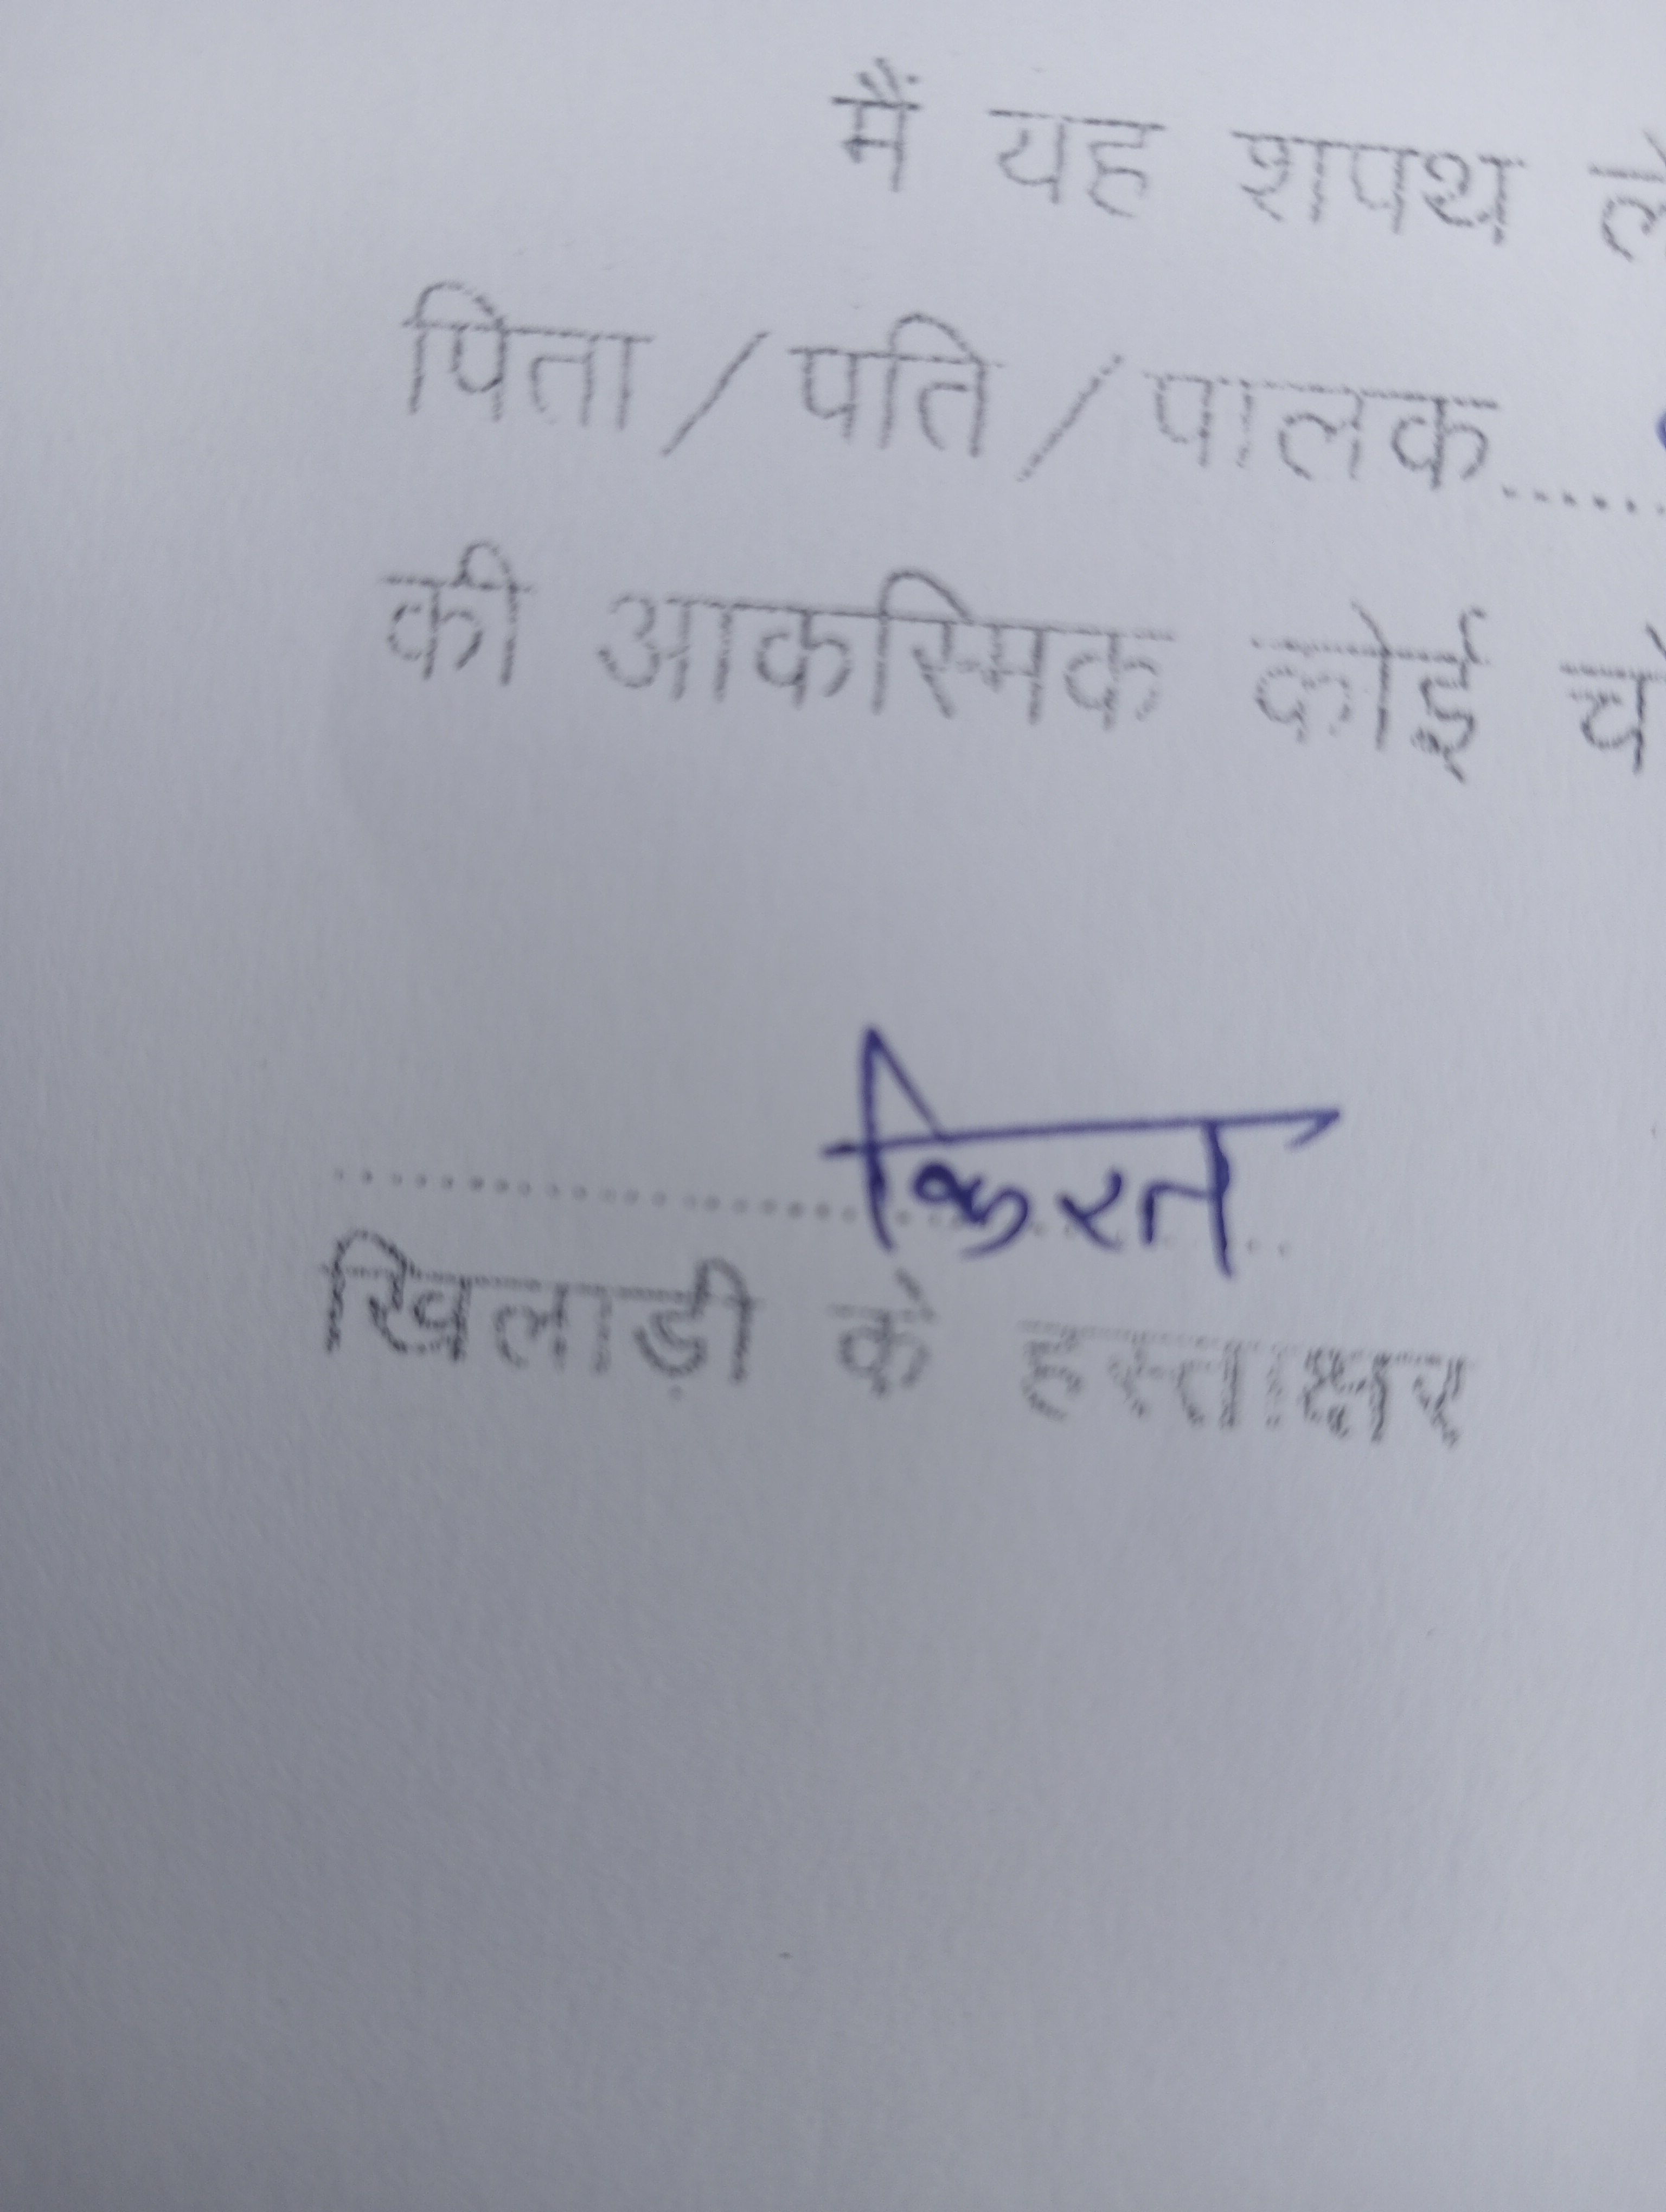 मैं यह शपथ ले
पिता / पति / पालक......
की आकस्मिक कोई चो
किरन
खिलाड़ी के हस्ताक्षर